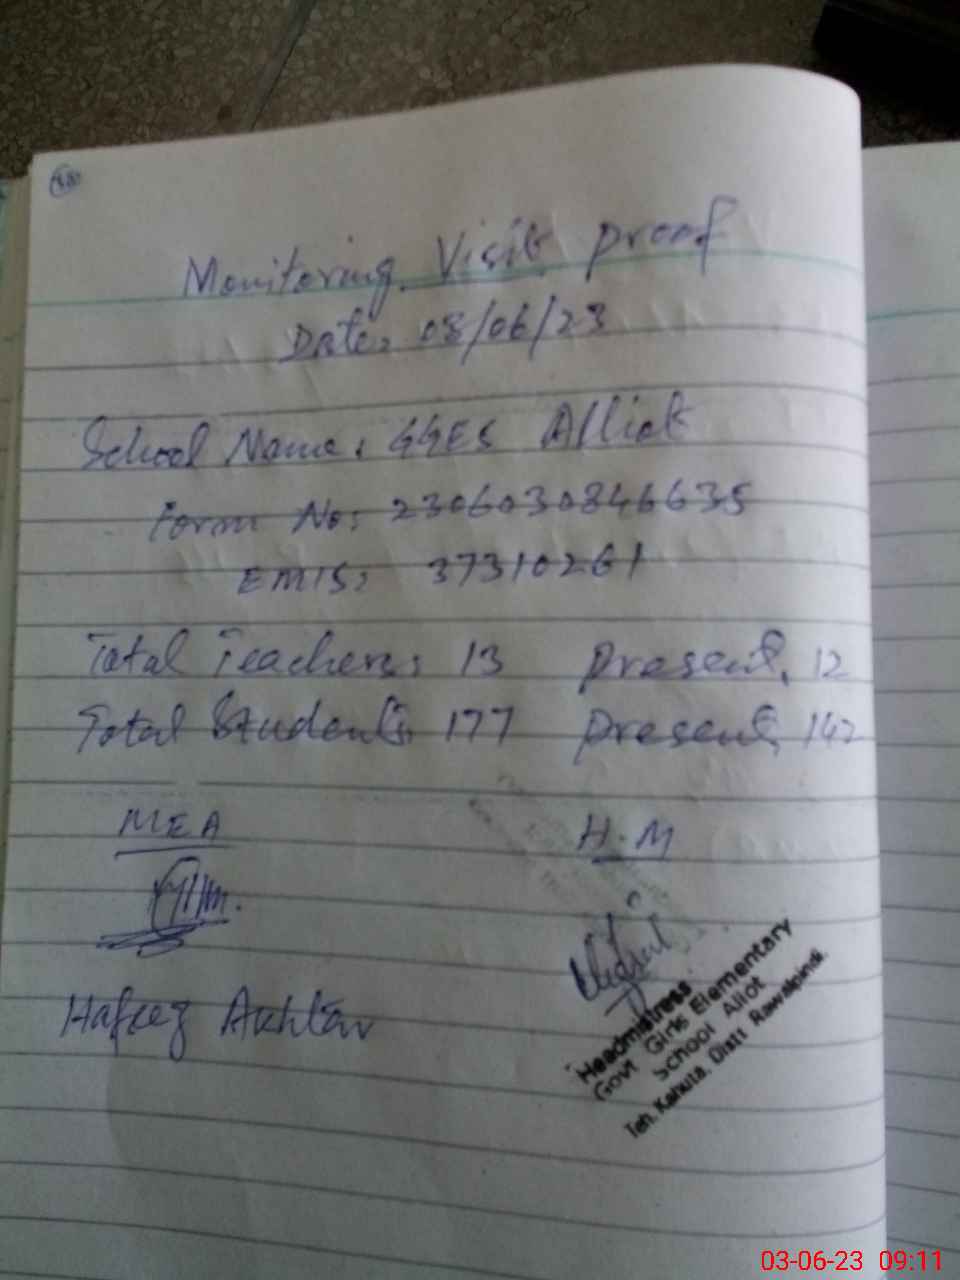 Monitoring Visit Proof
Date: 03/06/23
School Name: GGES Alliot
Form No: 2306030846635
EMIS: 37310261
Total Teachers: 13 Present: 12
Total Students: 177 Present: 142
MEA
H.M
Hafeez Akhtar
Headmistress
Govt Girls Elementary
School Aliot
Teh. Kahuta, Distt Rawalpindi.
03-06-23 09:11